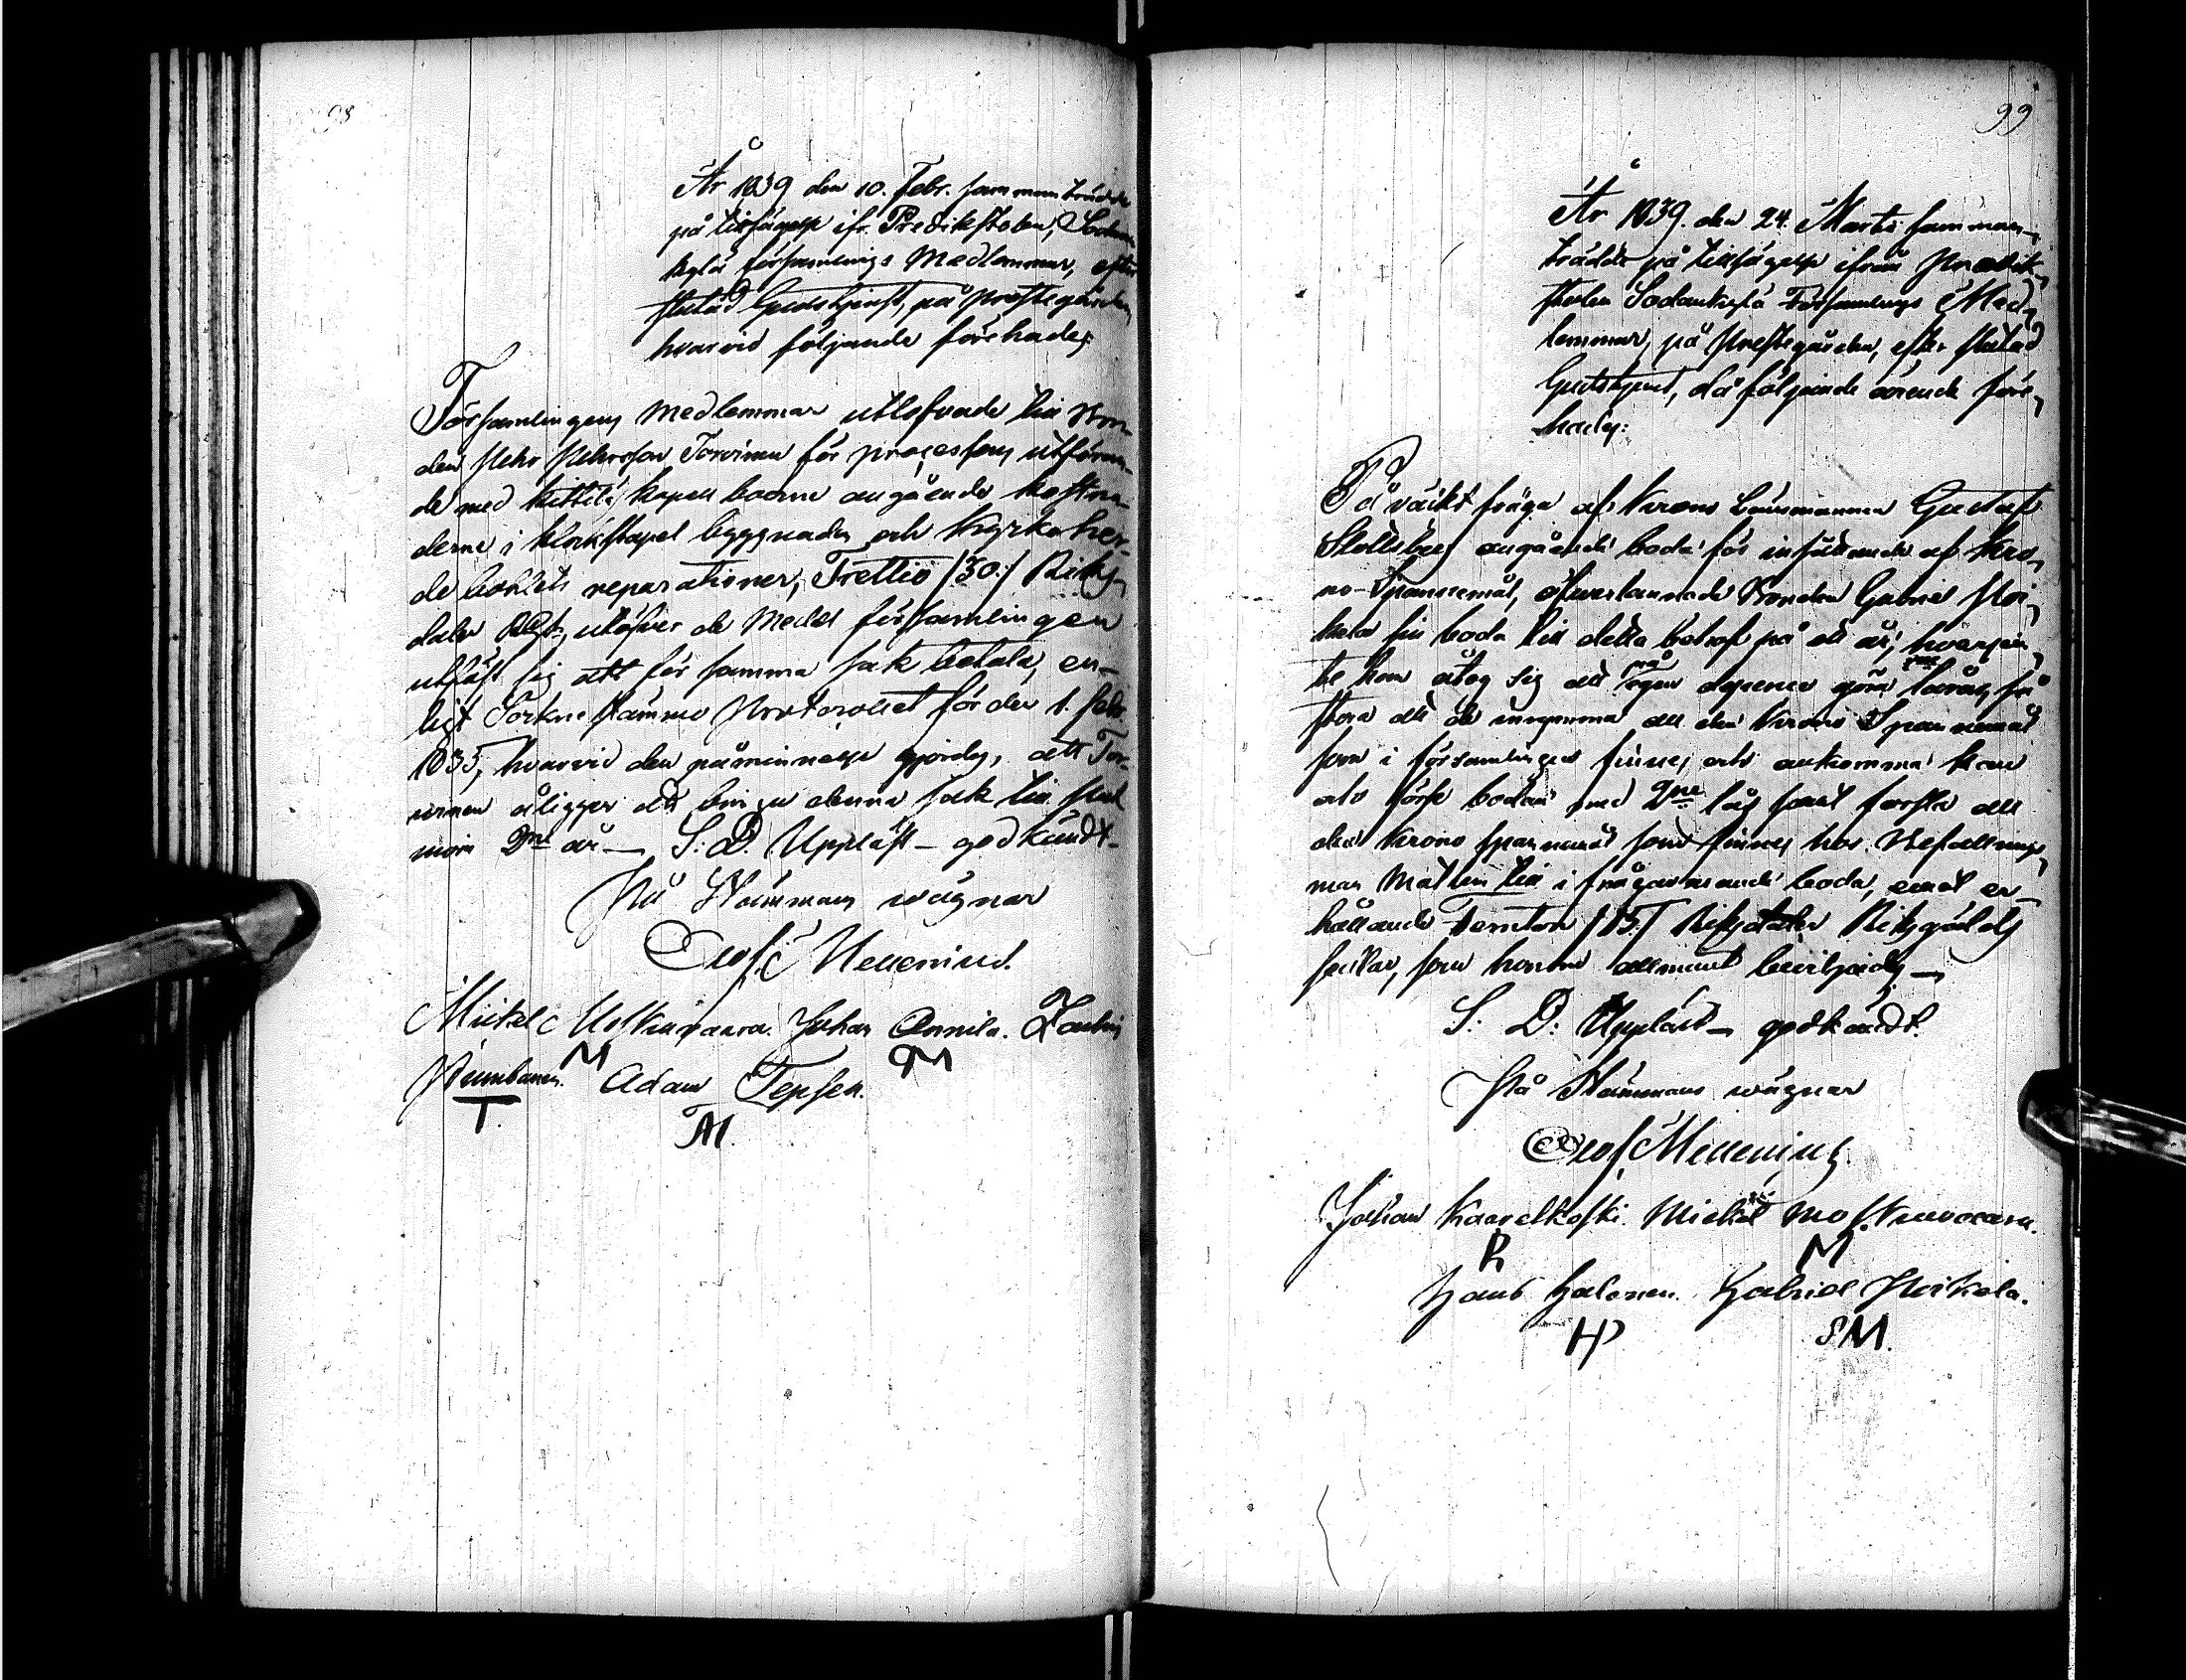 98
År 1839 den 10. Febr. sammanträdde
på tillsägelse ifr. Predikstolen, Sodan-
kylä församlings Medlemmar, efter
slutad Gudstjenst, på Prestegården,
hvarvid följande förehades:
Församlingens Medlemmar utlofvade till Bon-
den Pehr Pehrsson Torvinen för processens utföran-
de med Kittilä Kapell boerne angående kostna-
derne i klockstapel byggnaden och Kyrkoher-
de bohlets reparationer, Trettio /:30:/ Riks-
daler Rgs., utöfver de Medel församlingen
utfäst sig att för samma sak betala, en-
ligt Sockne stämmo Protocollet för den 1. Febr.
1835, hvarvid den påminnelse gjordes, att Tor-
vinen åligger att bringa denna sak till slut
inom 2ne år — S. D. Uppläst - godkändt.
På Stämmans wägnar
Olof Mellenius.
Mickel Moskuvaara. Johan Onnila. Paulus
M M
Kumbanen. Adam Tepsen.
T. M.
99
År 1839. den 24. Martii samman-
trädde på tillsägelse ifrån Predik-
stolen Sodankylä Församlings Med-
lemmar, på Prestegården, efter slutad
Gudstjenst, då följande ärende före-
hades:
På väckt fråga af Krono Länsmannen Gustaf
angående boda för insättande af Kro-
no-Spannemål, öfverlemnade Bonden Gabriel Poi-
kela sin boda till detta behof på ett år, hvarjem-
te han åtog sig att på egen depence göra
stora att de inrymma all den Krono Spannemål
som i församlingen finnes och ankomma kan
och förse bodan med 2ne lås samt forsla all
den Krono spannemål som finnes hos Befallnings-
man till i frågavarande boda, emot er-
hållande Femton /15:/ Riksdaler Riksgälds
sedlar, som honom allmänt beviljades —
S. D. Uppläst — godkändt.
På Stämmans wägnar
Olof Mellenius
Johan Kaarelkoski. Mickel Moskuvaara.
R M
Hans Halonen. Gabriel Poikela.
HP SM.